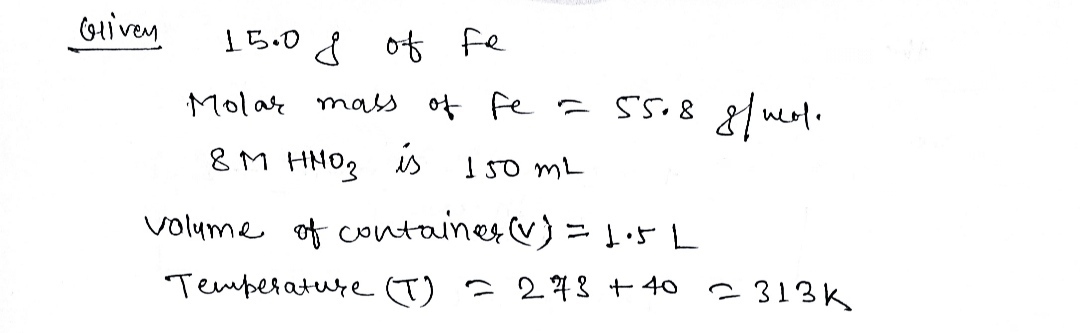 Given 15.0 g of Fe
Molar mass of Fe = 55.8 g/mol.
8 M HNO3 is 150 mL
volume of container (V) = 1.5 L
Temperature (T) = 273 + 40 = 313K